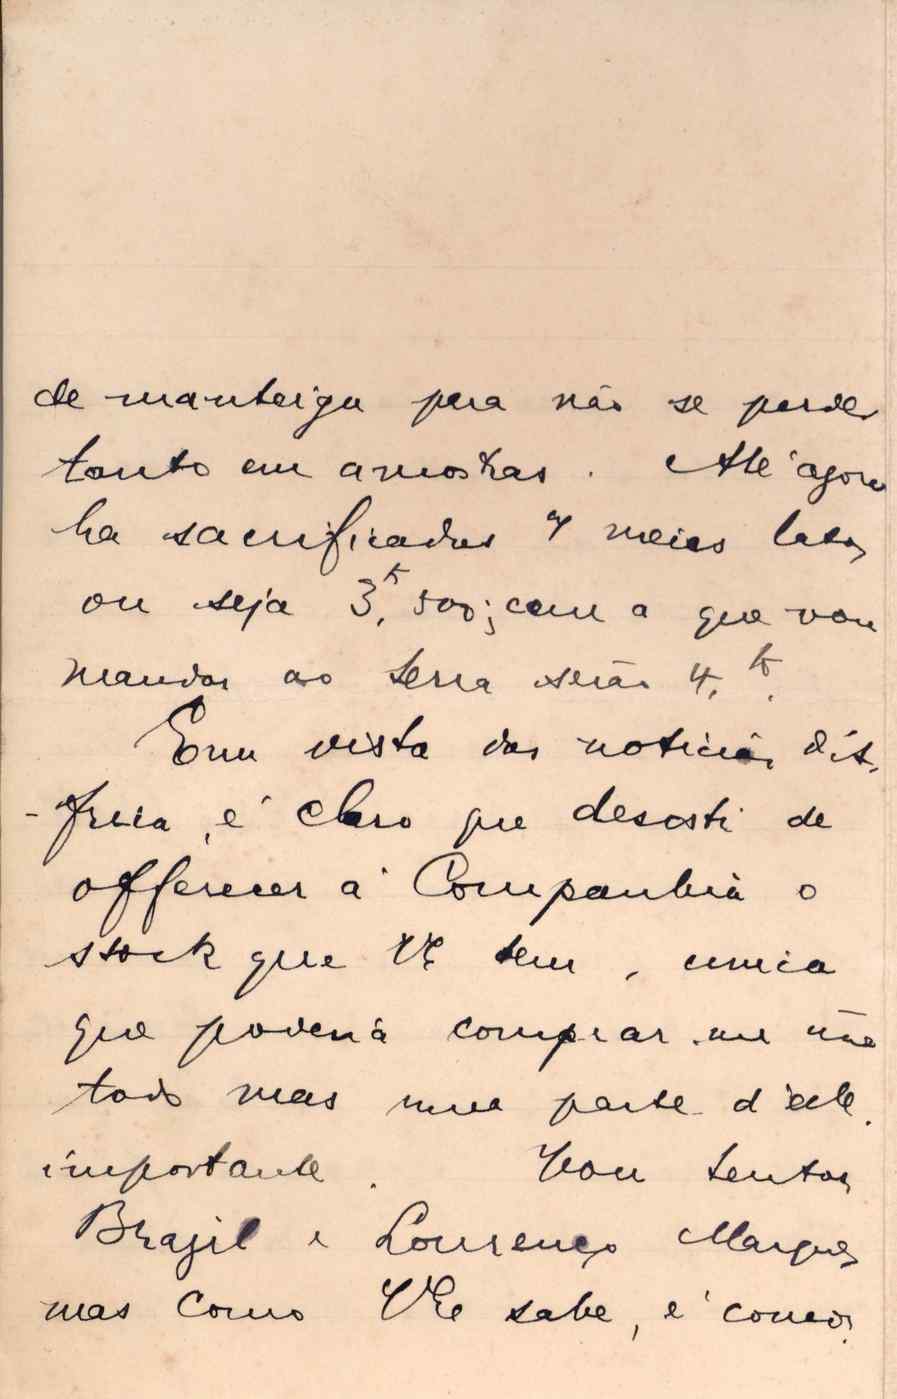 de manteiga para não se perder
tanto em amostras. Até agora
ha sacrificadas 7 meias latas
ou seja 3,k 500; com a que vou
mandar ao Serra serão 4,k.
Em vista das noticias d'Af-
-frica, é claro que desisti de
offerecer á Companhia o
stock que VE tem, unica
que poderia comprar-me não
todo mas uma parte d'elle
importante. Vou tentar
Brazil e Lourenço Marques
mas como VExe sabe, é